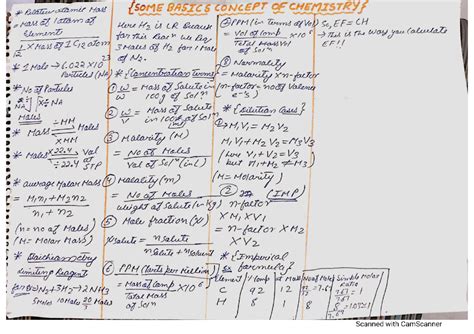 {SOME BASICS CONCEPT OF CHEMISTRY}
* Relative atomic Mass
= Mass of 1 atom of Element
1/12 x Mass of 1 C12 atom
* 1 Mole → 6.022 x 10^23 Particles (NA)
* No of Particles
Moles
* Mass ÷MM Moles
xMM
* Moles x22.4 Vol at STP
÷22.4
* average Molar Mass
= M1n1+M2n2
n1 + n2
(n = no of Moles)
(M = Molar Mass)
* Stoichiometry
Limiting Reagent
N2+3H2→2NH3
5moles 10moles 20/3 moles
Here H2 is LR Because
for this Reax^n we Req
3 Moles of H2 for 1 Mole
of N2.
* {Concentration terms}
① w/w = Mass of Solute in
100g of Sol^n
② w/v = Mass of Solute
in 100 of Sol^n
③ Molarity (M)
= No of Moles
Vol of Sol^n (in L)
④ Molality (m)
= No of Moles
weight of Solute (in Kg)
⑤ Mole fraction (x)
xsolute = nsolute
nsolute + nsolvent
⑥ PPM (Parts Per Million)
= Mass of Comp x 10^6
Total Mass of Sol^n
PPM (in Terms of Vol)
= Vol of Comp x 10^6
Total Mass Vol of Sol^n
⑧ Normality
= Molarity x n-factor
(n-factor → no of Valence e-s)
* {Dilution Cases}
① M1V1 = M2V2
M1V1 + M2V2 = M3V3
(here V1+V2 = V3
but M1+M2 ≠ M3)
(M = Molarity)
② (IMP)
n-factor
x M1 x V1
= n-factor x M2
x V2
* {Empirical formula}
Element % Comp At Mass No of Moles Simple Molar Ratio
C 92 12
H 8 1 8
So, EF = CH
→ This is the way you Calculate EF!!
Scanned with CamScanner